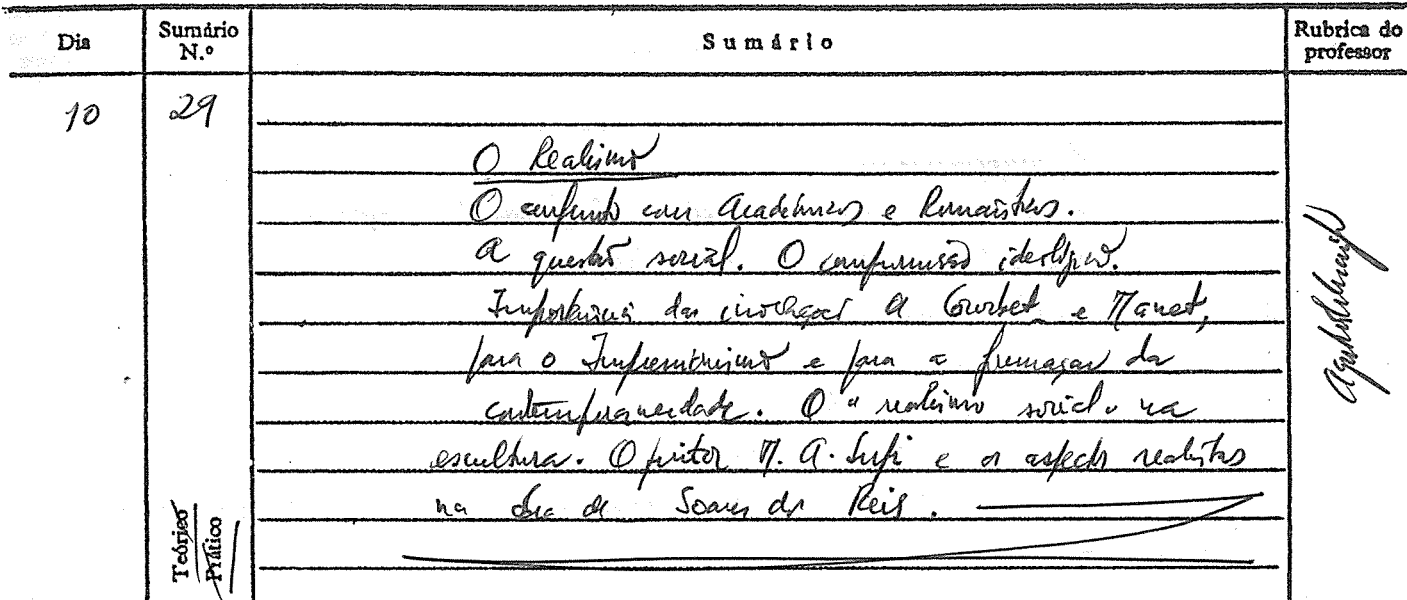 Dia
Sumário N.º
Sumário
Rubrica do professor
10
29
O Realismo
O confronto com Académicos e Românticos.
A questão social. O compromisso ideológico.
Importância das inovações de Courbet e Manet,
para o Impressionismo e para a formação da
contemporaneidade. O "realismo social" na
escultura. O pintor M. A. Lupi e os aspectos realistas
na obra de Soares dos Reis.
Teórico
Prático